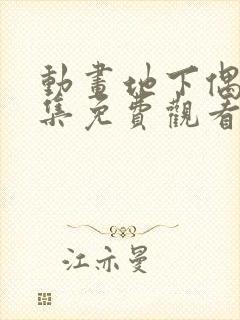 動畫地下偶
集免費觀看
江亦曼